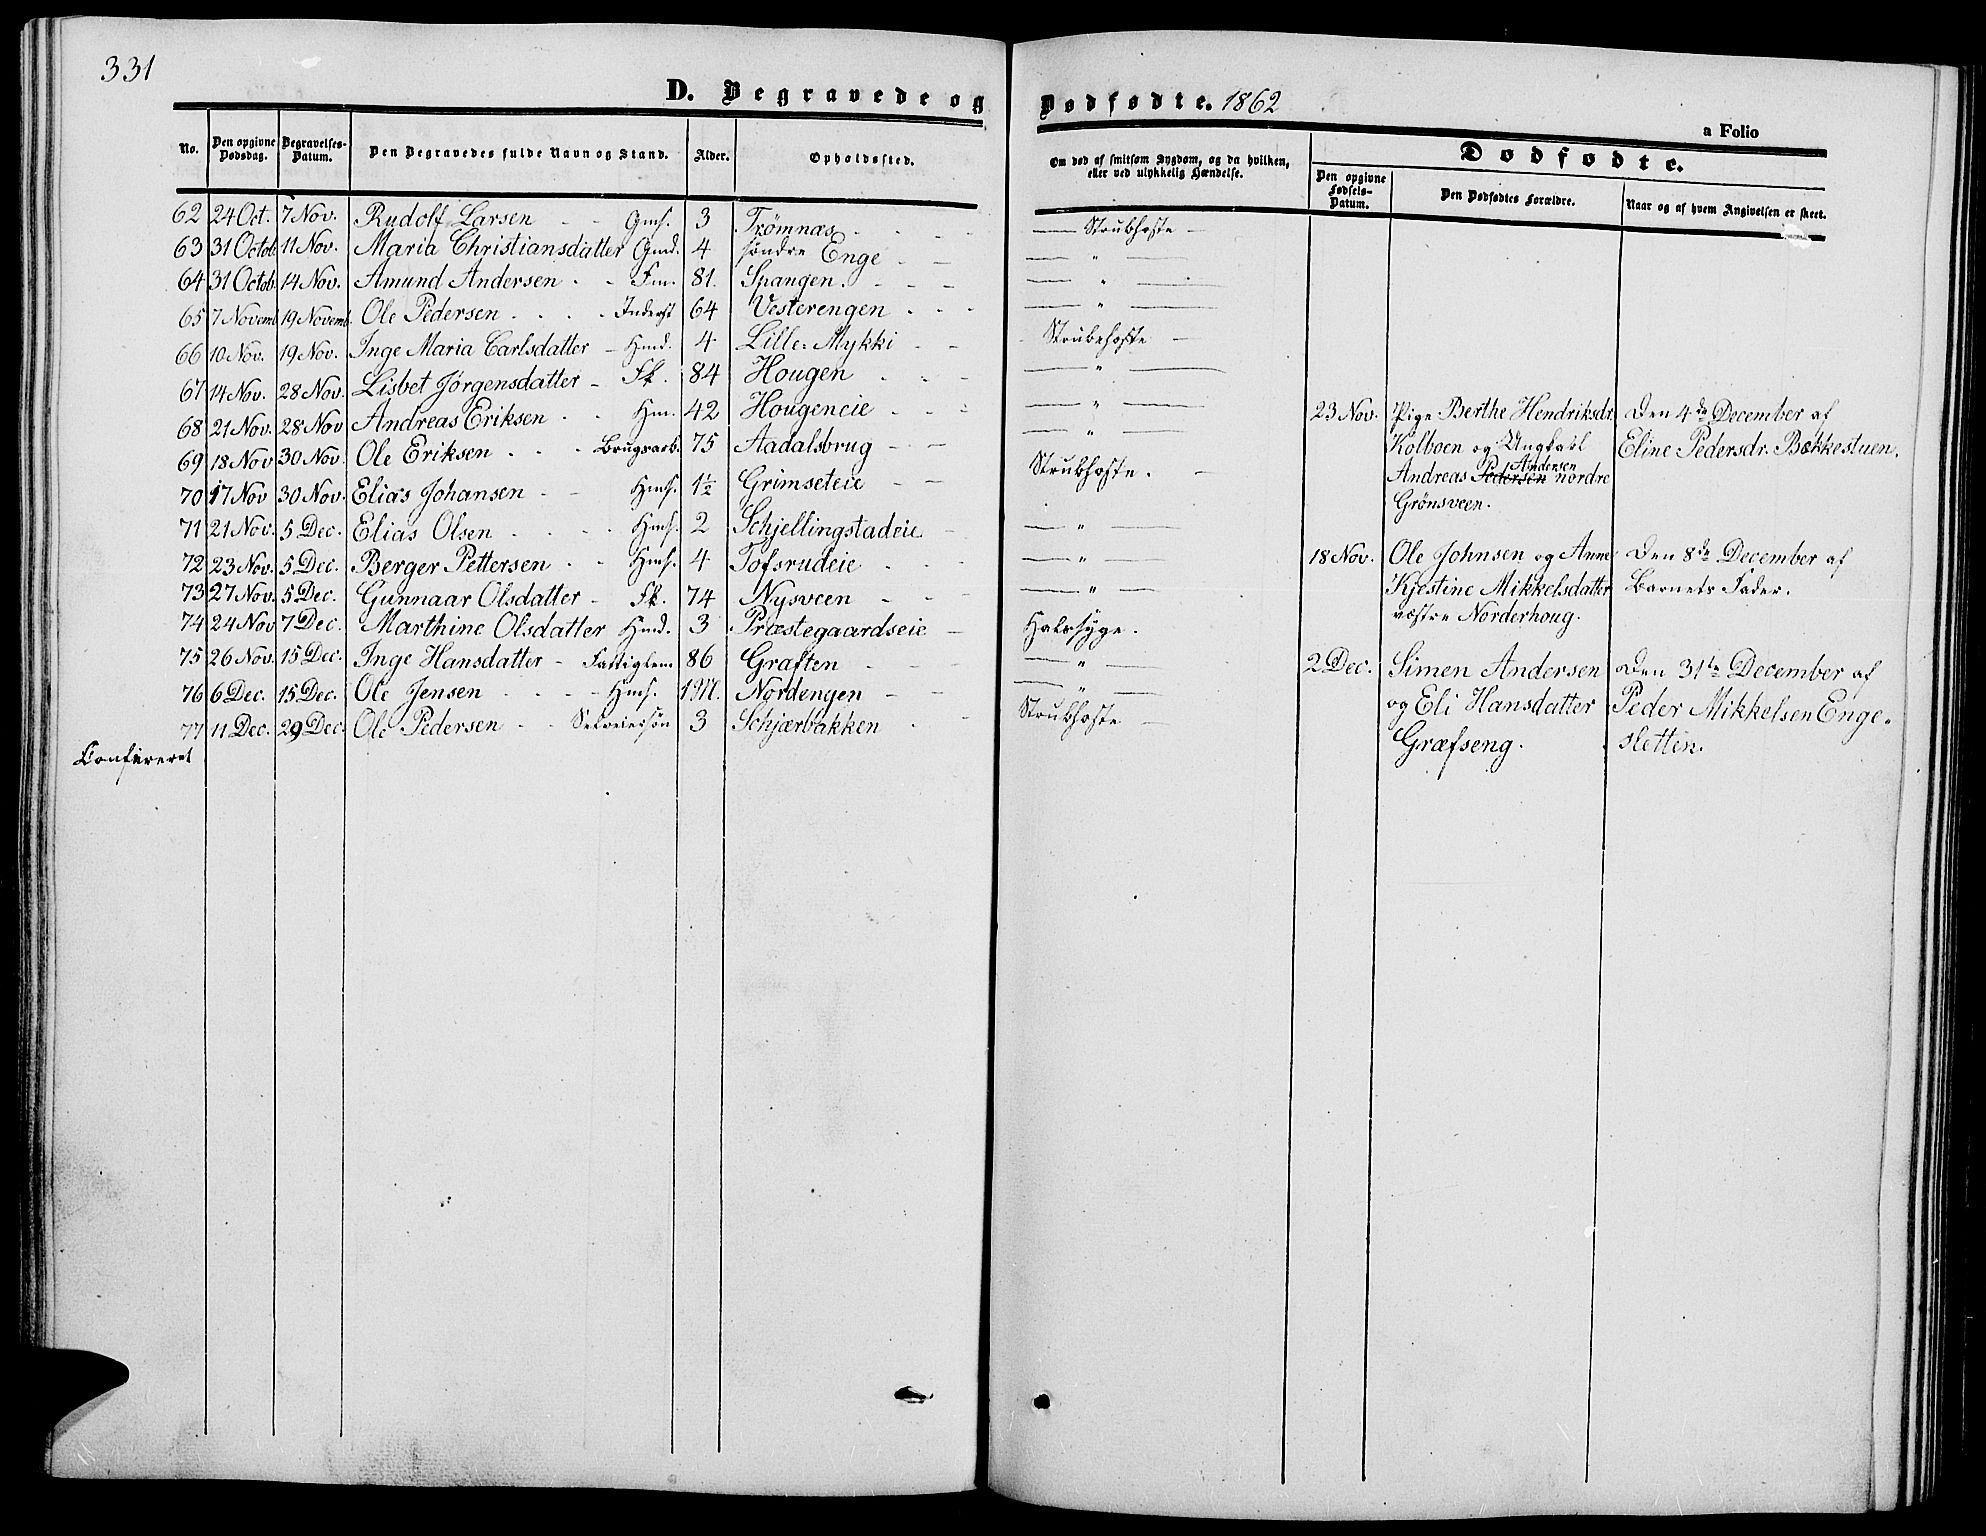 331
D. Begravede og Dødfødte. 1862
a Folio
No. Den opgivne Dødsdag. Begravelses-Datum. Den Begravedes fulde Navn og Stand. Alder. Opholdssted. Om død af smitsom Sygdom, og da hvilken, eller ved ulykkelig Hændelse.
Dødfødte.
Den opgivne Fødsels-Datum. Den Dødfødtes Forældre. Naar og af hvem Angivelsen er skeet.
62 24 Oct. 7 Nov. Rudolf Larsen - - Gms. 3 Trømnæs - Strubhoste -
63 31 Octob. 11 Nov. Maria Christiansdatter Gmd. 4 søndre Enge - - — " —
64 31 Octob. 14 Nov. Amund Andersen - - Fm. 81. Spangen. - - - — " —
65 7 Novemb. 19 Novemb. Ole Pedersen - - - - Inderst 64 Vesterengen - - - — " —
66 10 Nov. 19 Nov. Inge Maria Carlsdatter - Hmd. 4 Lille-Mykki - - Strubehoste -
67 14 Nov. 28 Nov. Lisbet Jørgensdatter - Fk. 84 Hougen - - - — " —
68 21 Nov. 28 Nov Andreas Eriksen - - Hm. 42 Hougeneie - - - — " —
69 18 Nov 30 Nov. Ole Eriksen - - - Brugsarb. 75 Aadalsbrug - - — " —
70 17 Nov 30 Nov. Elias Johansen - - Hms. 1½ Grimseteie - - Strubhoste. -
71 21 Nov. 5 Dec. Elias Olsen - - - - Hms. 2 Schjellingstadeie - — " —
72 23 Nov. 5 Dec. Berger Pettersen - - Hms. 4 Tofsrudeie - - - — " —
73 27 Nov. 5 Dec. Gunnaar Olsdatter - Fk. 74 Nysveen - - — " —
74 24 Nov 7 Dec. Marthine Olsdatter Hmd. 3 Præstegaardseie - Halssyge.
75 26 Nov. 15 Dec. Inge Hansdatter - Fattiglem 86 Graften - - - — " —
76 6 Dec. 15 Dec. Ole Jensen - - - - Hms. 1 M. Nordengen - - — " —
77 11 Dec. 29 Dec. Ole Pedersen - - Selveiersøn 3 Schjærbakken - - Strubhoste -
Confereret
23 Nov. Pige Berthe Hendriksdr. Den 4de December af
Kolboen og Ungkarl Eline Pedersdr. Bækkestuen.
Andersen
Andreas Pedersen nordre
Grønsveen.
18 Nov. Ole Johnsen og Anne Den 8de December af
Kjestine Mikkelsdatter Barnets Fader.
vestre Norderhoug.
2 Dec. Simen Andersen Den 31te December af
og Eli Hansdatter Peder Mikkelsen Enge-
Græfseng. sletten.